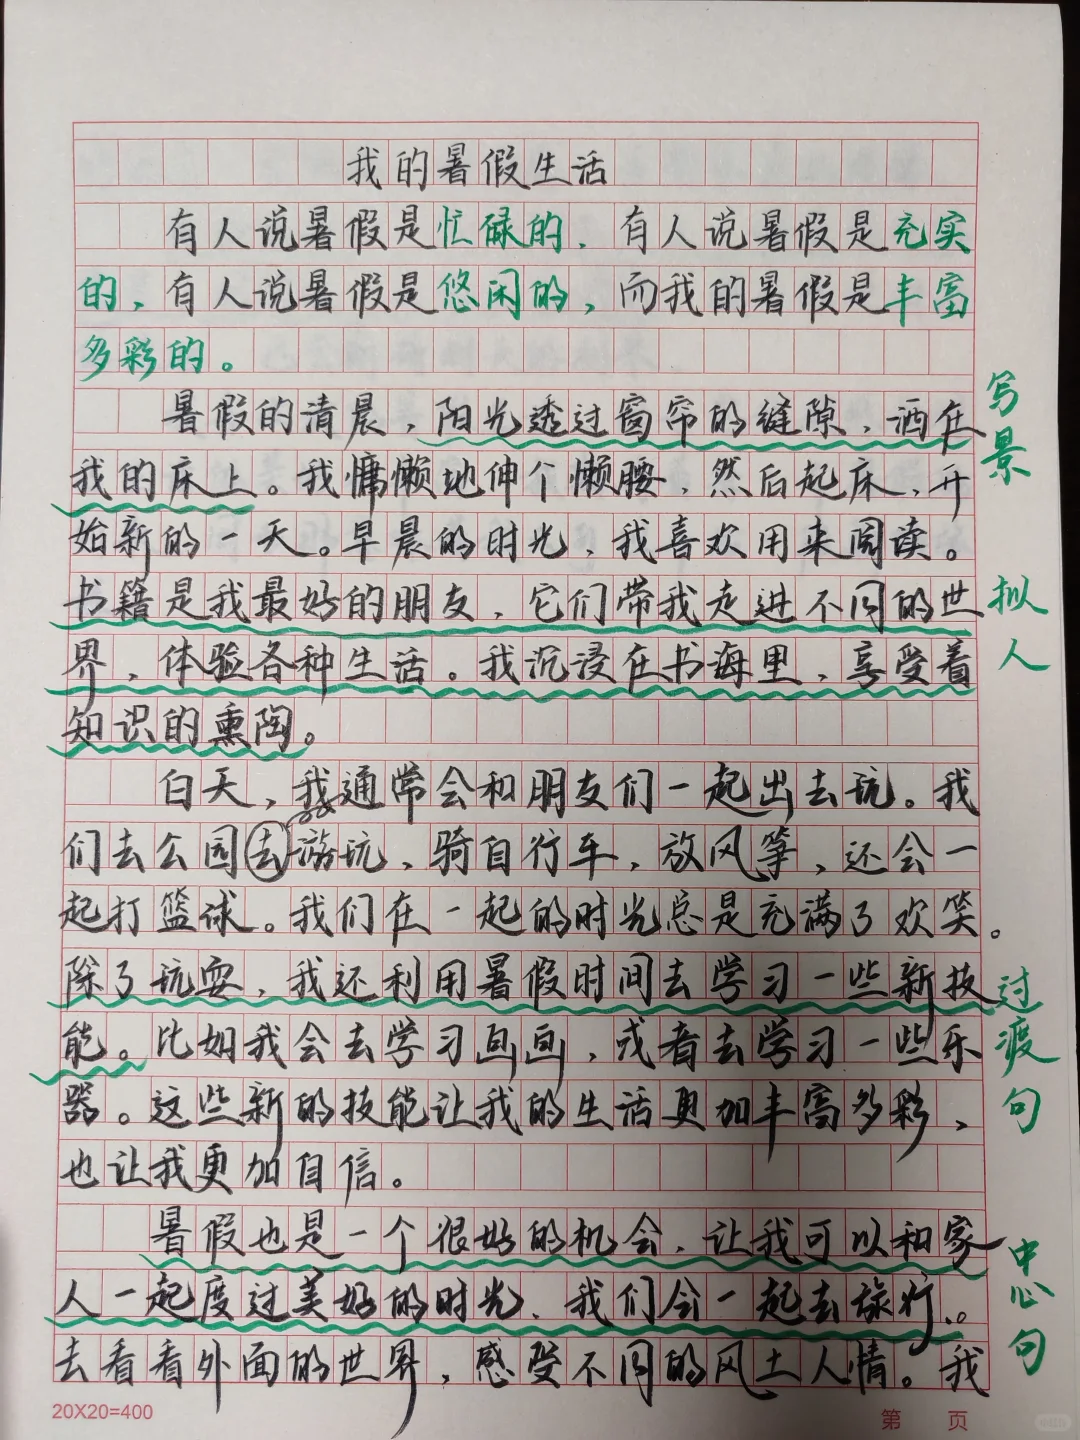 我的暑假生活
有人说暑假是忙碌的，有人说暑假是充实
的，有人说暑假是悠闲的，而我的暑假是丰富
多彩的。
暑假的清晨，阳光透过窗帘的缝隙，洒在
我的床上。我慵懒地伸个懒腰，然后起床，开
始新的一天。早晨的时光，我喜欢用来阅读。
书籍是我最好的朋友，它们带我走进不同的世
界，体验各种生活。我沉浸在书海里，享受着
知识的熏陶。
白天，我通常会和朋友们一起出去玩。我
们去公园去游玩，骑自行车，放风筝，还会一
起打篮球。我们在一起的时光总是充满了欢笑。
除了玩耍，我还利用暑假时间去学习一些新技
能。比如我会去学习画画，或者去学习一些乐
器。这些新的技能让我的生活更加丰富多彩，
也让我更加自信。
暑假也是一个很好的机会，让我可以和家
人一起度过美好的时光，我们会一起去旅行。
去看看外面的世界，感受不同的风土人情。我
写景
拟人
过渡句
中心句
20X20=400
第 页